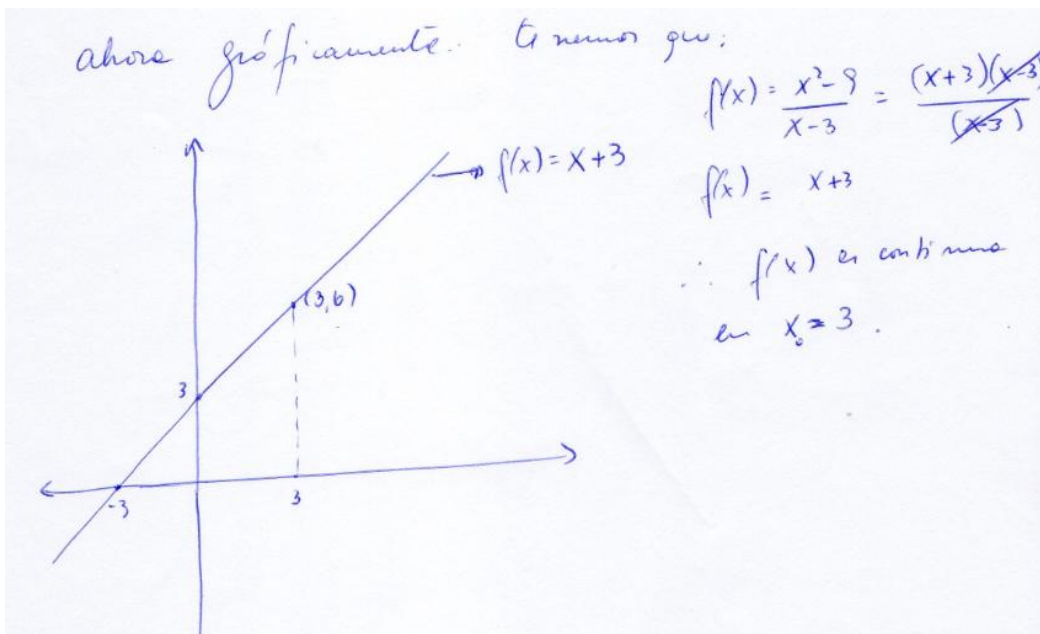 ahora gráficamente. tenemos que:
f(x) = x²-9 / x-3 = (x+3)(x-3) / (x-3)
f(x) = x+3
∴ f(x) es continua
en x₀ = 3.
→ f(x) = x+3
(3,6)
3
-3
3